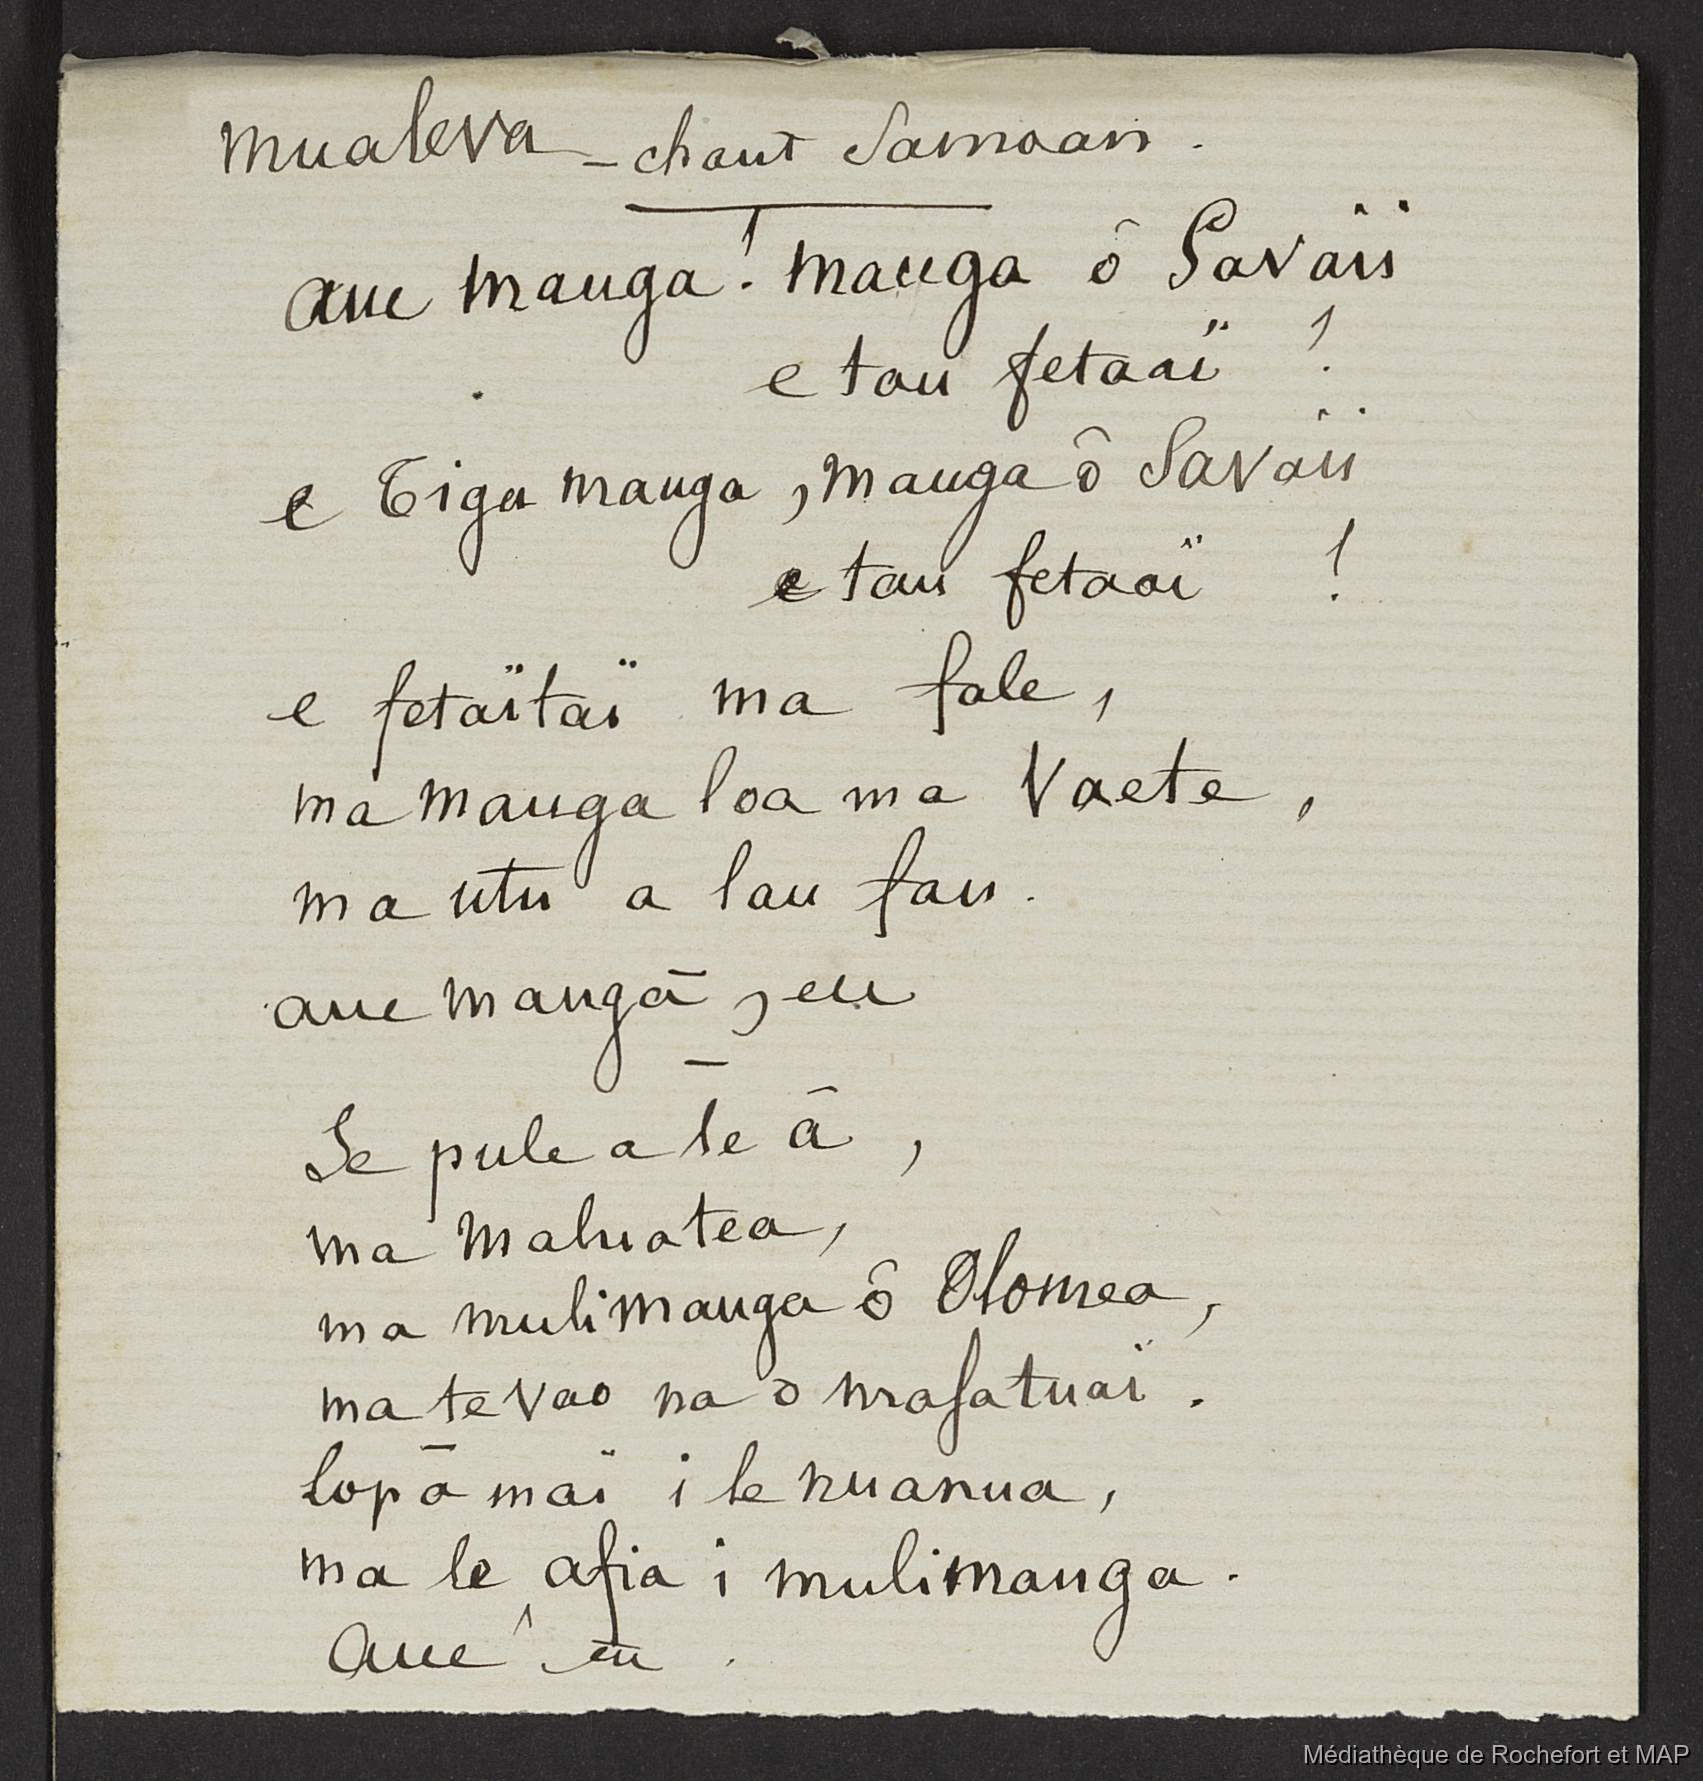 mualeva – chant Samoan.
aue mauga ! mauga ô Savaïi
e tau fetaaï !
e Tiga mauga, mauga ô Savaïi
e tau fetaaï !
e fetaïtaï ma fale,
ma mauga loa ma Vaete,
ma utu a lau fau.
aue maugā, eu
–
Se pule a le ā,
ma maluatea,
ma mulimauga ô Olomea,
ma te vao na o mafatuaï.
lopā maï i le nuanua,
ma le afia i mulimauga.
Aue eu.
Médiathèque de Rochefort et MAP